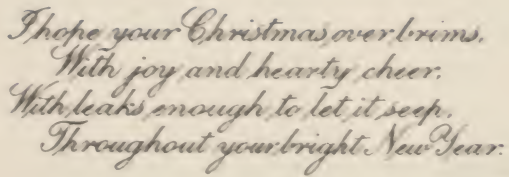 I hope your Christmas over brims.
With joy and hearty cheer.
With leaks enough to let it seep.
Throughout your bright New Year.